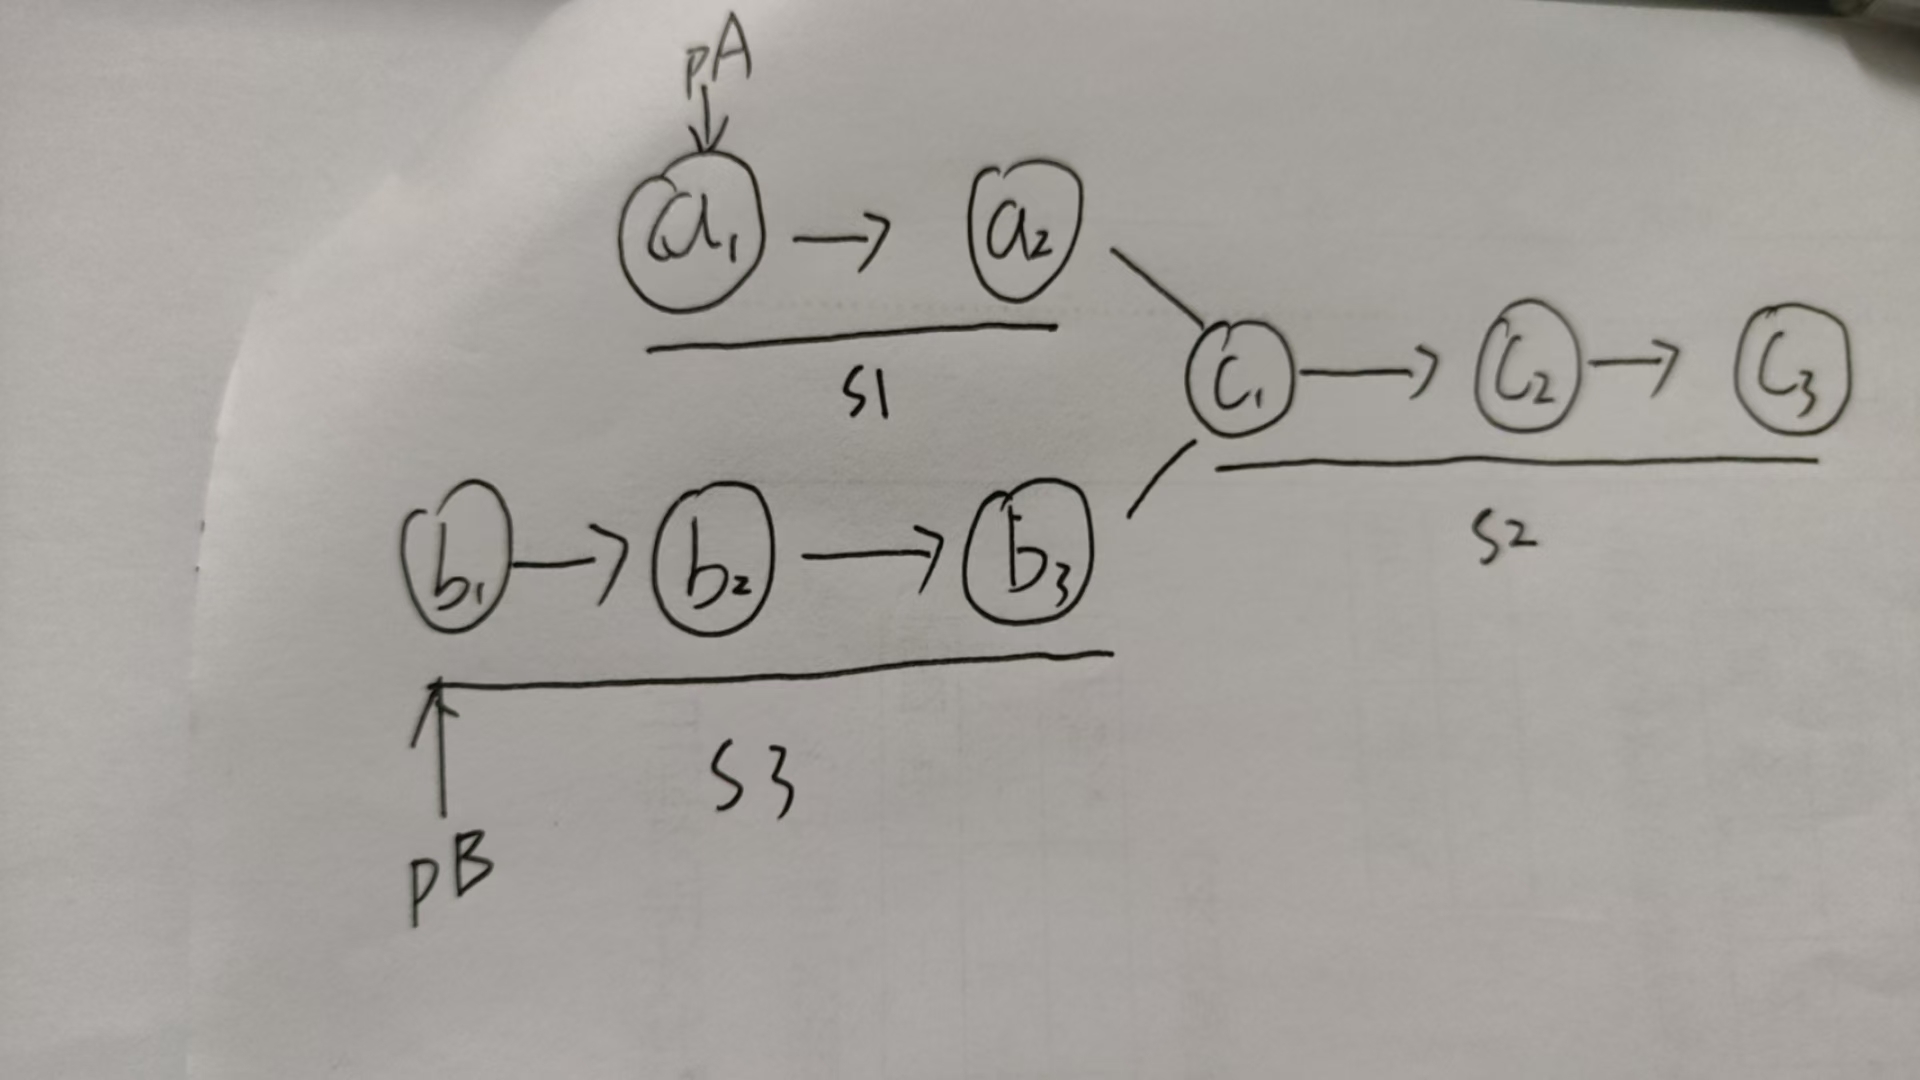 pA
a1 → a2
S1
c1 → c2 → c3
S2
b1 → b2 → b3
S3
pB